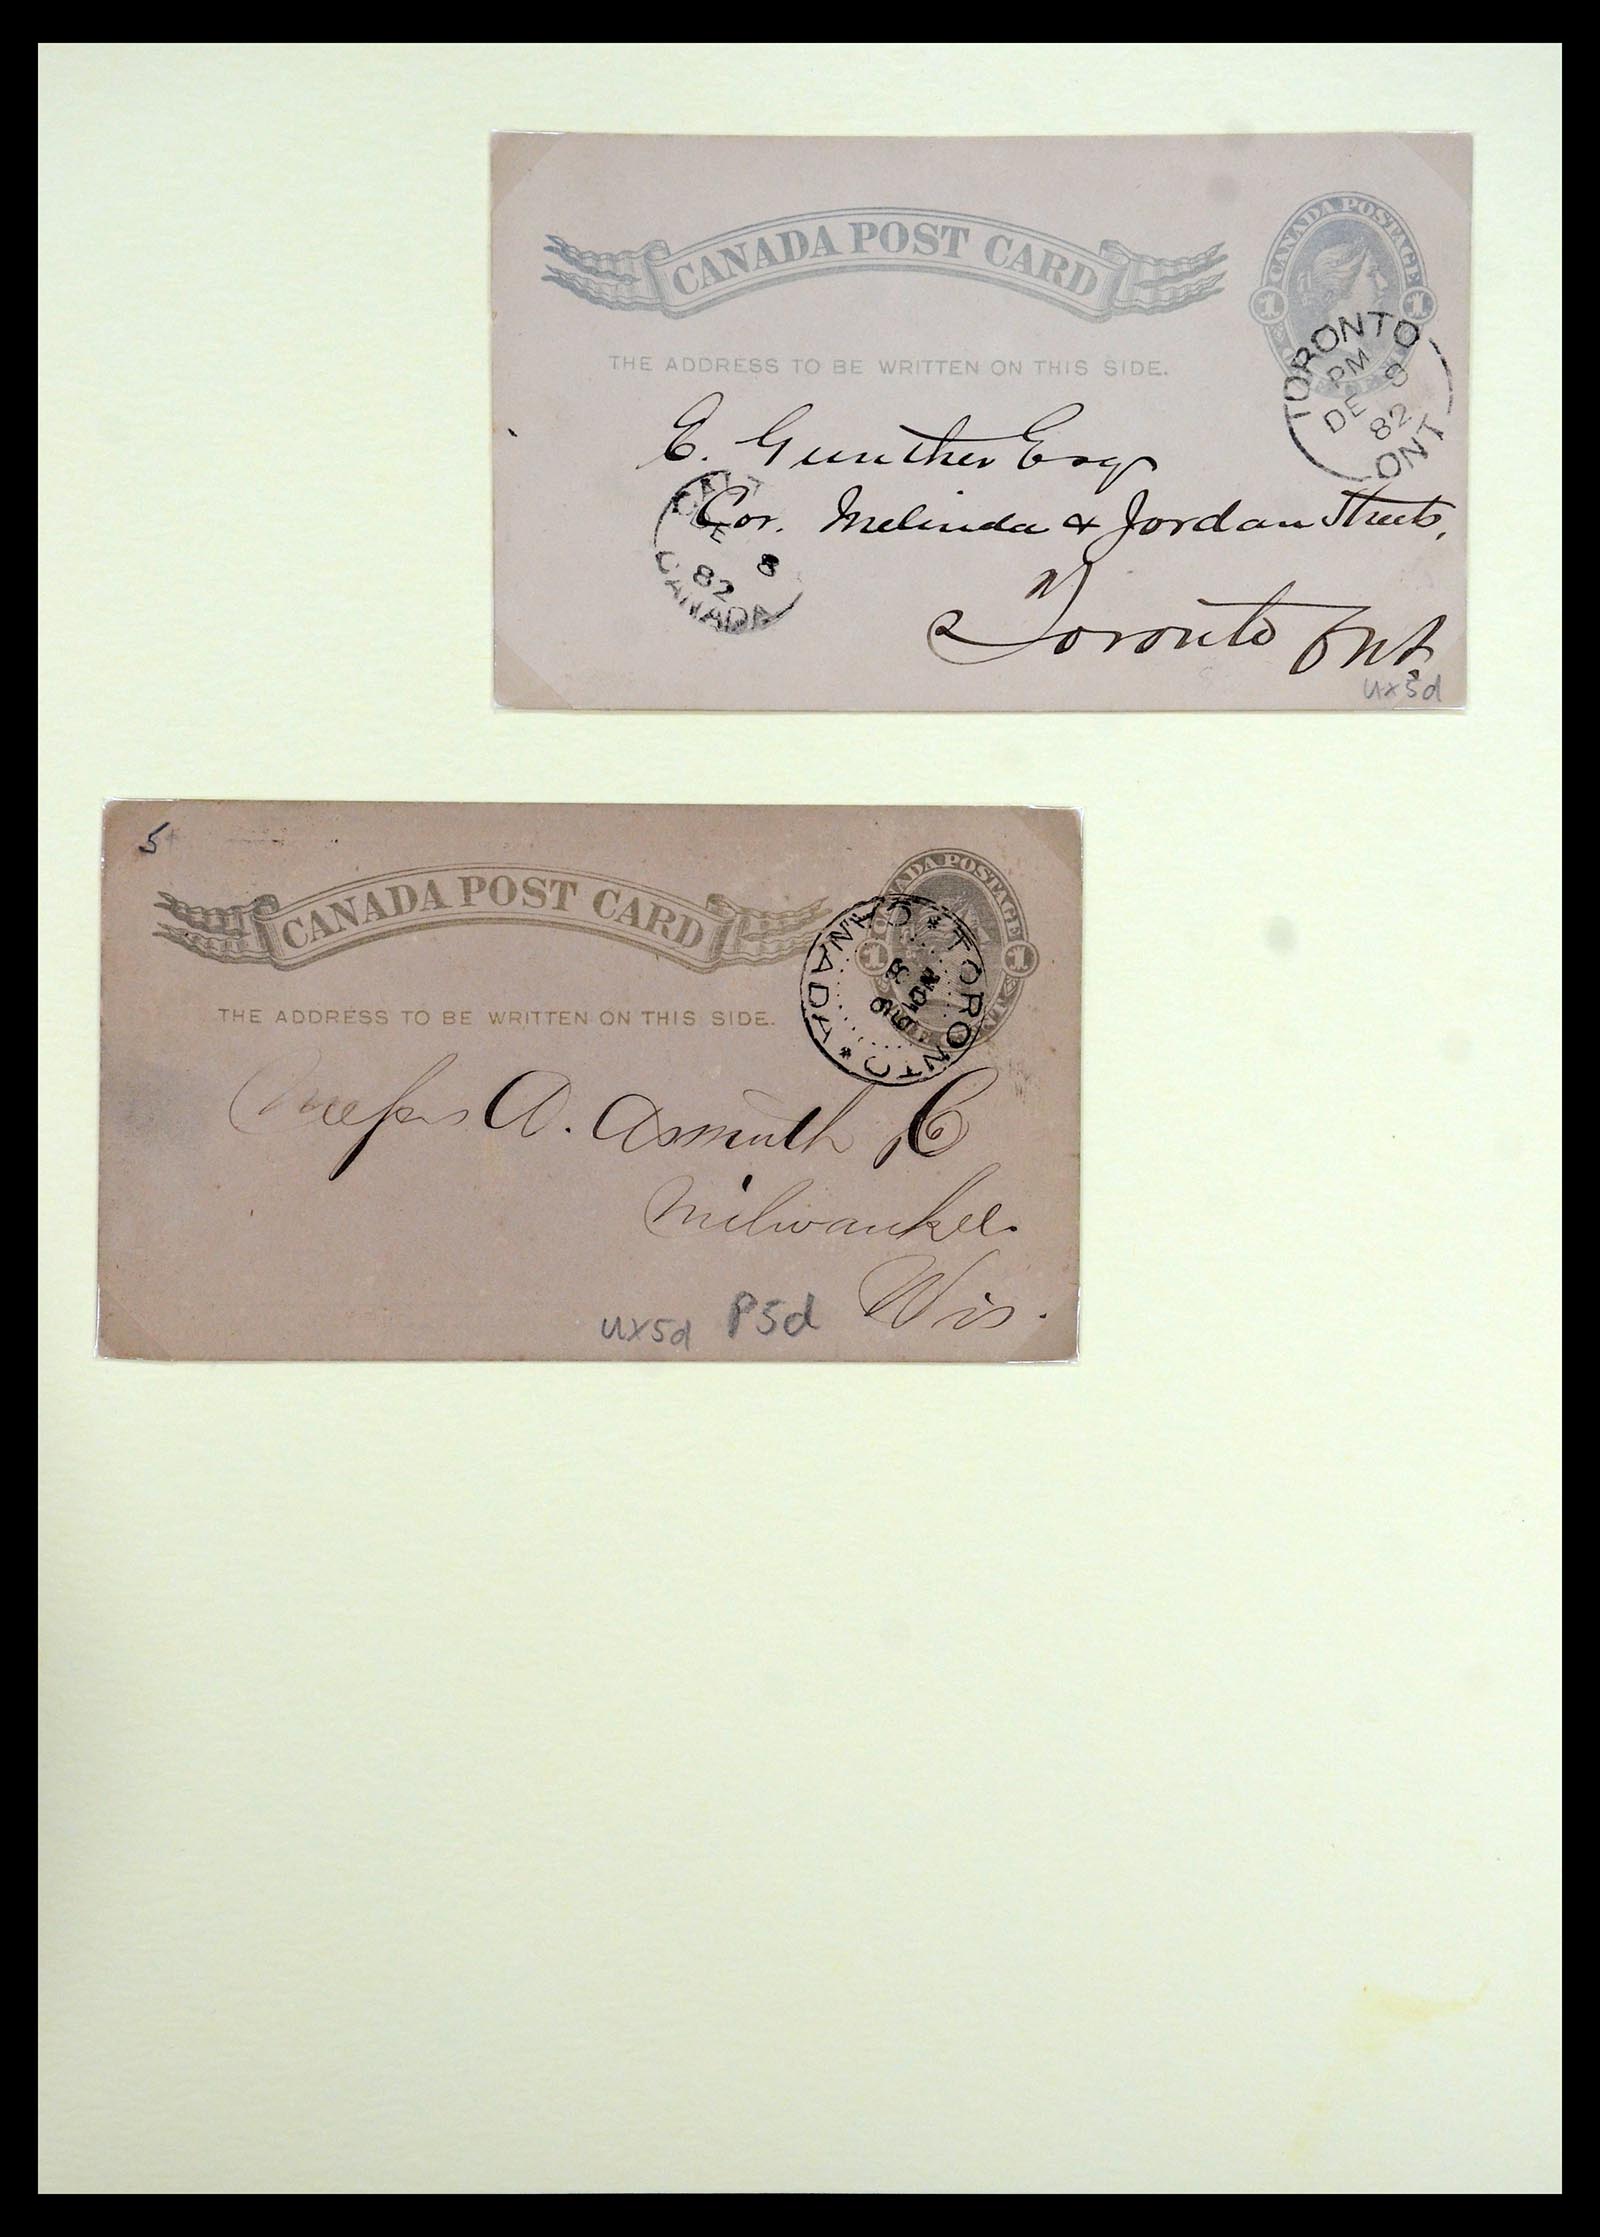 CANADA POST CARD
CANADA POSTAGE
1 1
THE ADDRESS TO BE WRITTEN ON THIS SIDE.
TORONTO
PM
DE 8
82
ONT
E. Gunther Esq
Cor. Melinda & Jordan Streets,
Toronto Ont.
GALT
DE 8
82
CANADA
UX5d
5
CANADA POST CARD
CANADA POSTAGE
1 1
THE ADDRESS TO BE WRITTEN ON THIS SIDE.
TORONTO * CANADA *
NO
Messrs A. Asmuth & Co
Milwaukee
Wis.
UX5d P5d